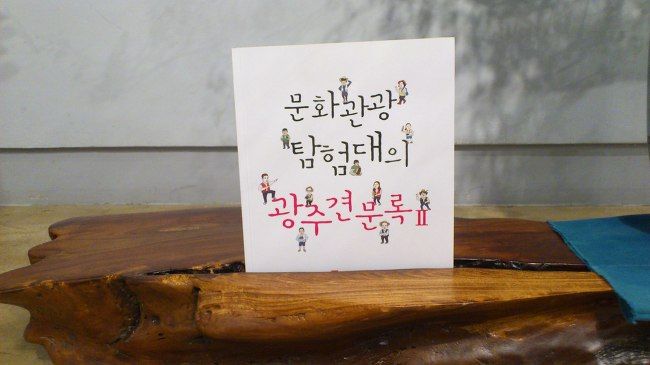 문화관광
탐험대의
광주견문록Ⅱ